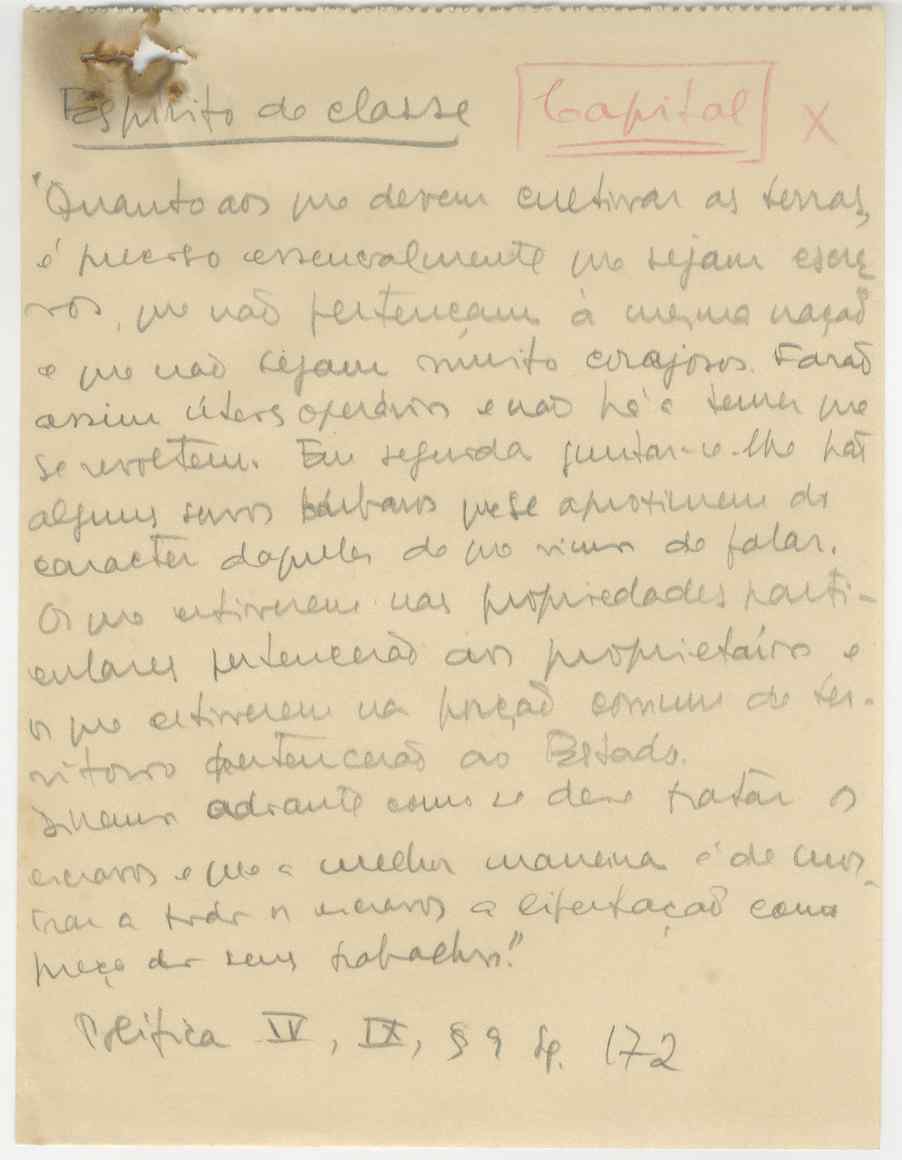 Espírito de classe Capital X
"Quanto aos que devem cultivar as terras,
é preciso essencialmente que sejam escra
vos, que não pertençam à mesma nação
e que não sejam muito corajosos. Farão
assim úteis operários e não há a temer que
se revoltem. Em seguida juntar-se-lhe hão
alguns servos bárbaros que se aproximem do
caracter daqueles de que vimos de falar.
Os que estiverem nas propriedades parti-
culares pertencerão aos proprietários e
os que estiverem na porção comum do ter-
ritorio pertencerão ao Estado.
Diremos adiante como se deve tratar os
escravos e que a melhor maneira é de mos-
trar a todos os escravos a libertação como
preço dos seus trabalhos."
Política IV, IX, § 9 p. 172